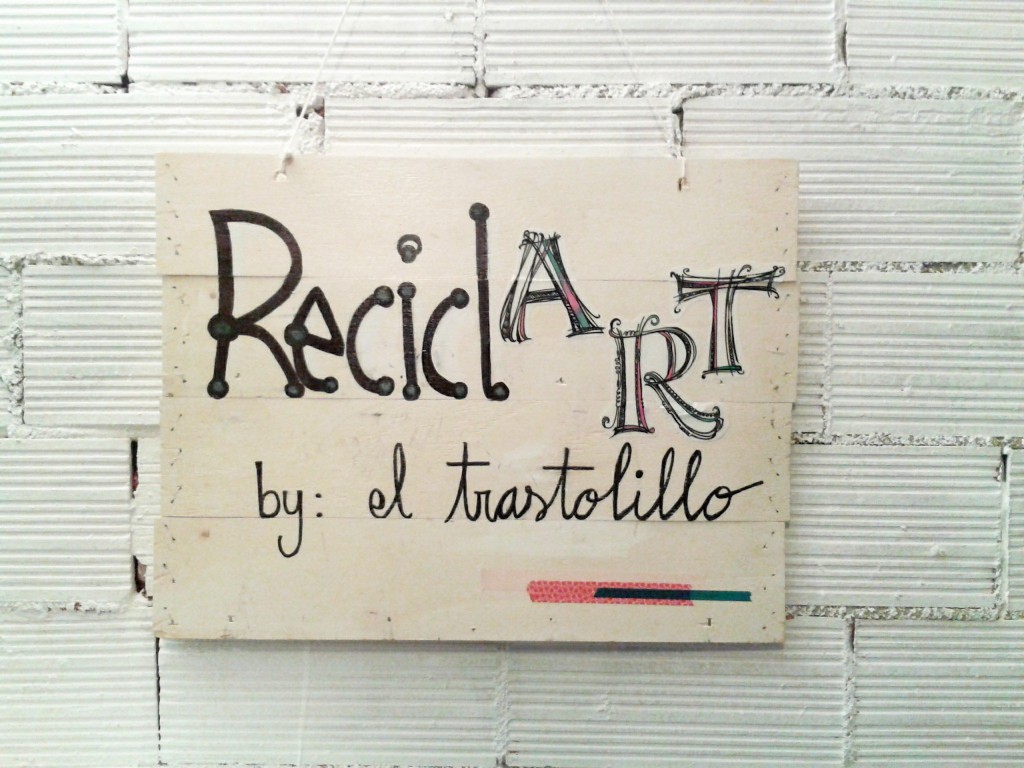 ReciclART
by: el trastolillo